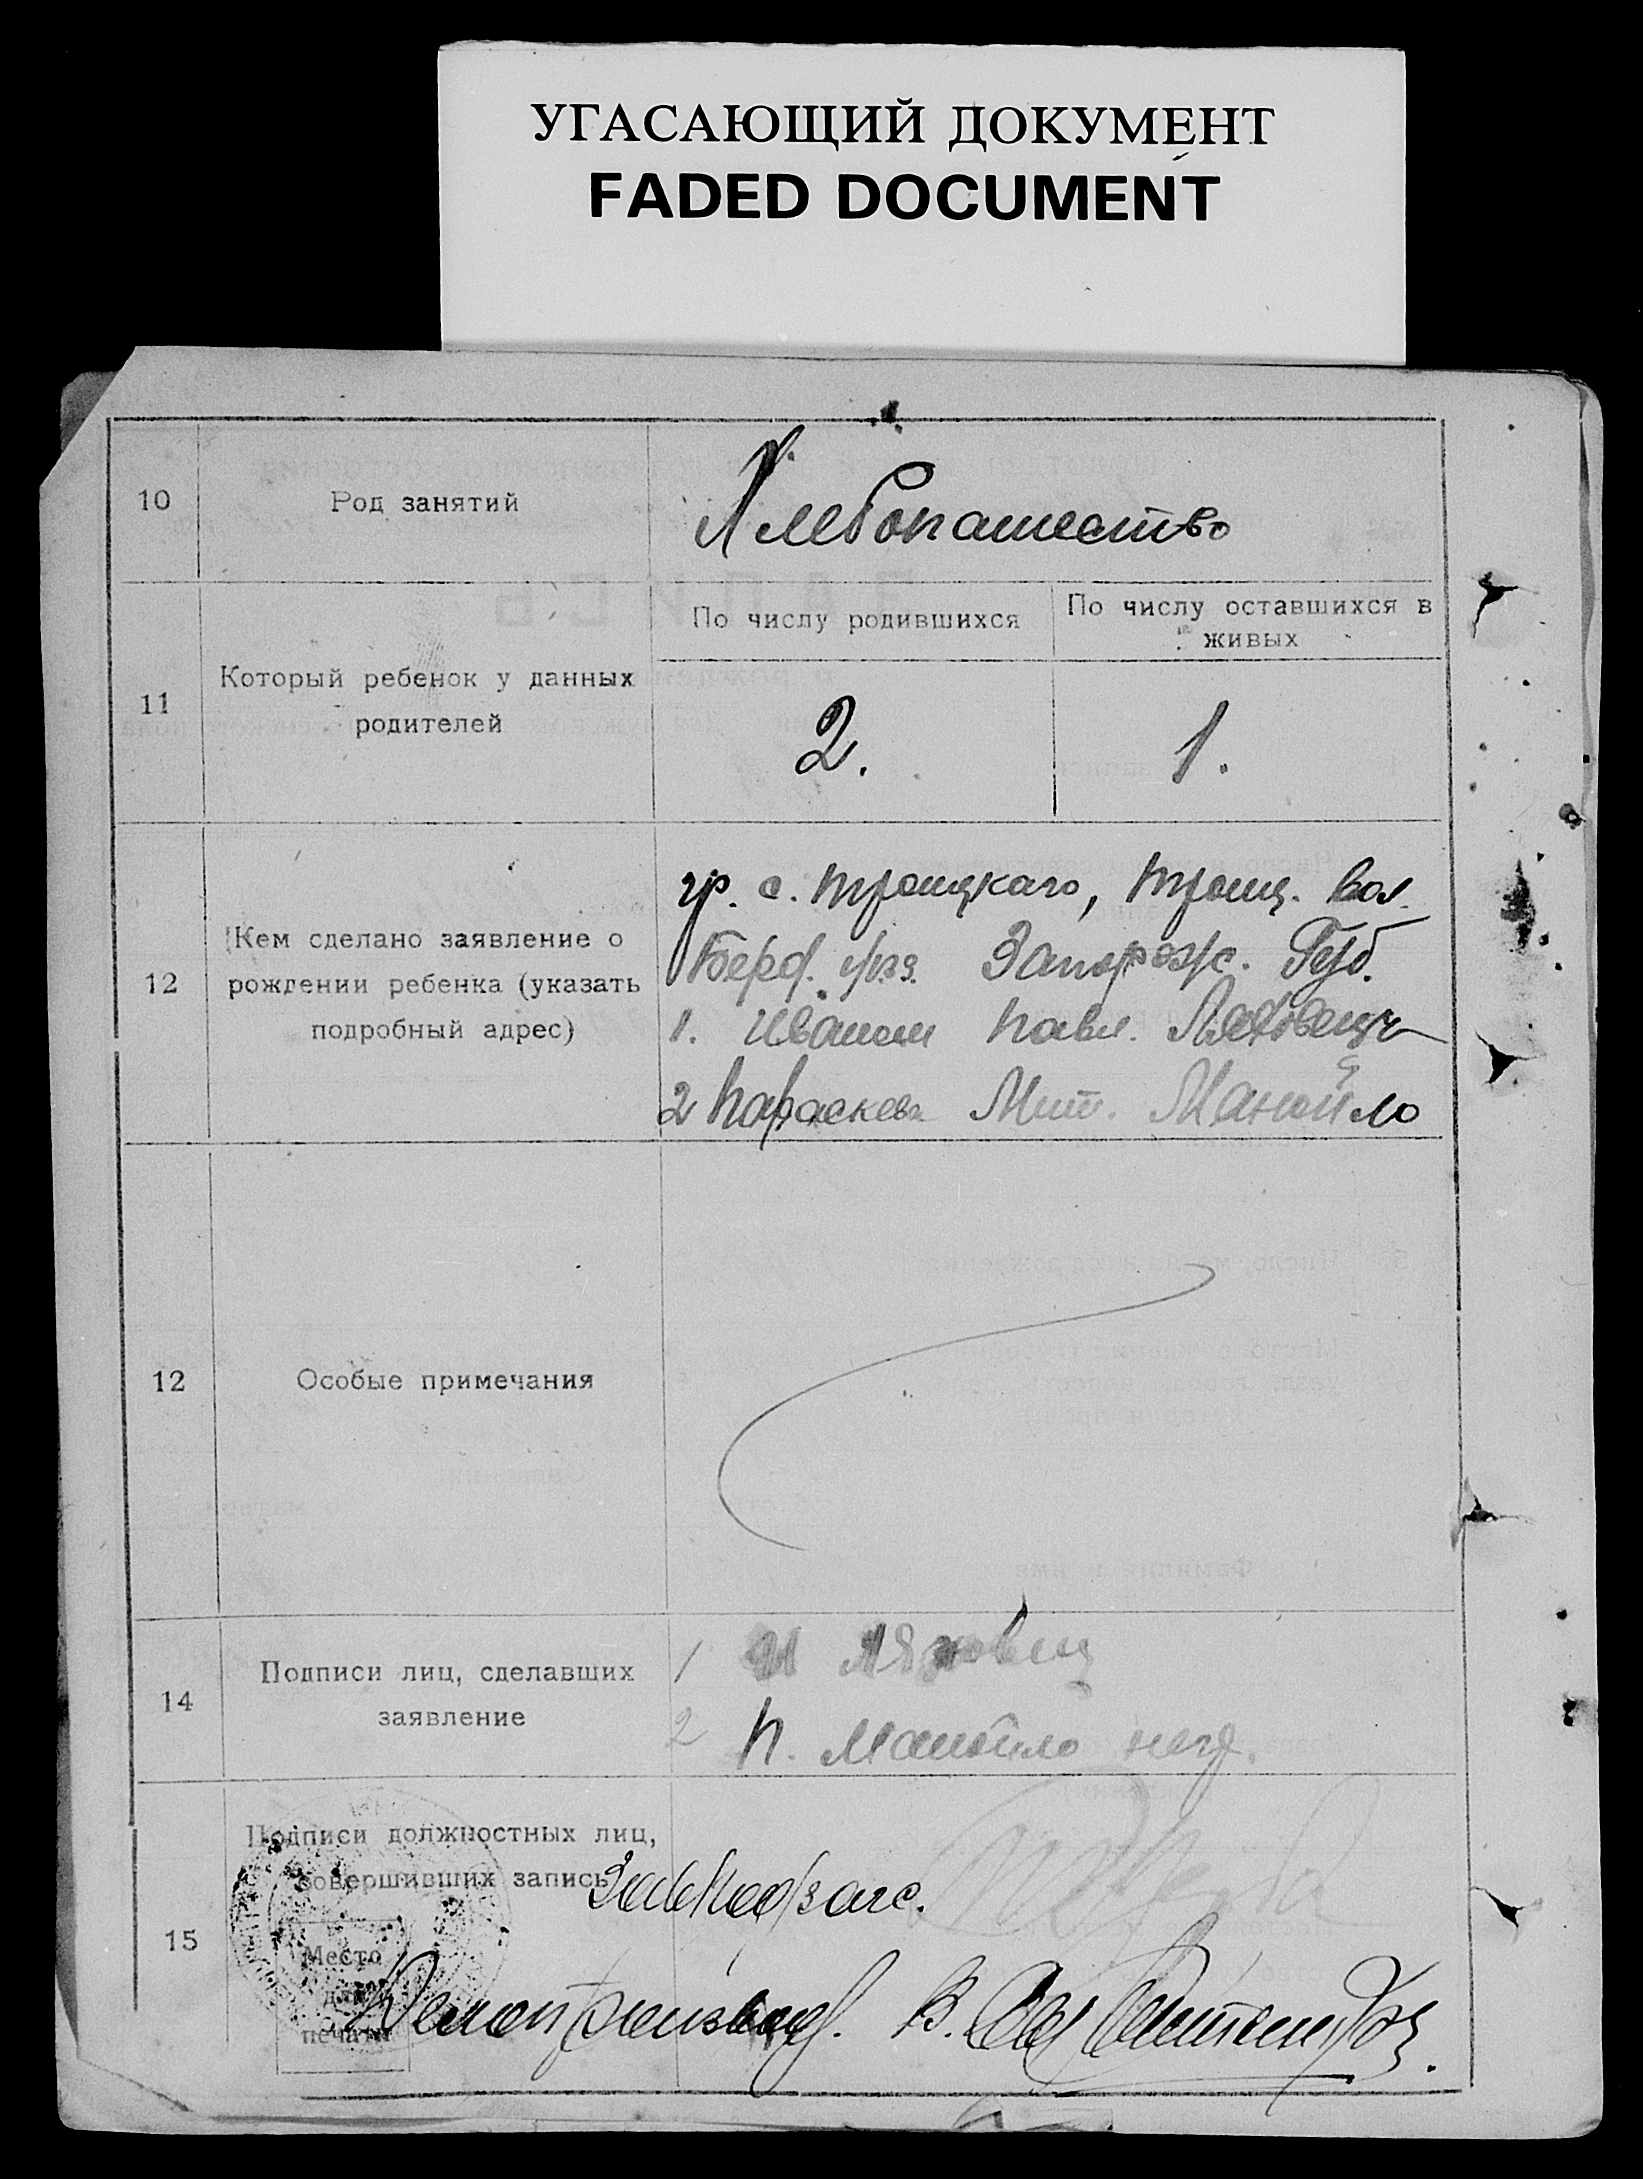 УГАСАЮЩИЙ ДОКУМЕНТ
FADED DOCUMENT
10
Род занятий
Хлебопашество
11
Который ребенок у данных
родителей
По числу родившихся
По числу оставшихся в
живых
2.
1.
12
Кем сделано заявление о
рождении ребенка (указать
подробный адрес)
гр. с. Троицкаго, Троиц. вол.
Берд. у. Запорож. Губ.
1. Иваном Павл. Ляховец
2 Параскева Мит. Манойло
12
Особые примечания
14
Подписи лиц, сделавших
заявление
1 И Ляховец
2 П. Манойло негр.
15
Подписи должностных лиц,
совершивших запись
Место
для
печати
Завподзагс.
Делопроизвод. В.